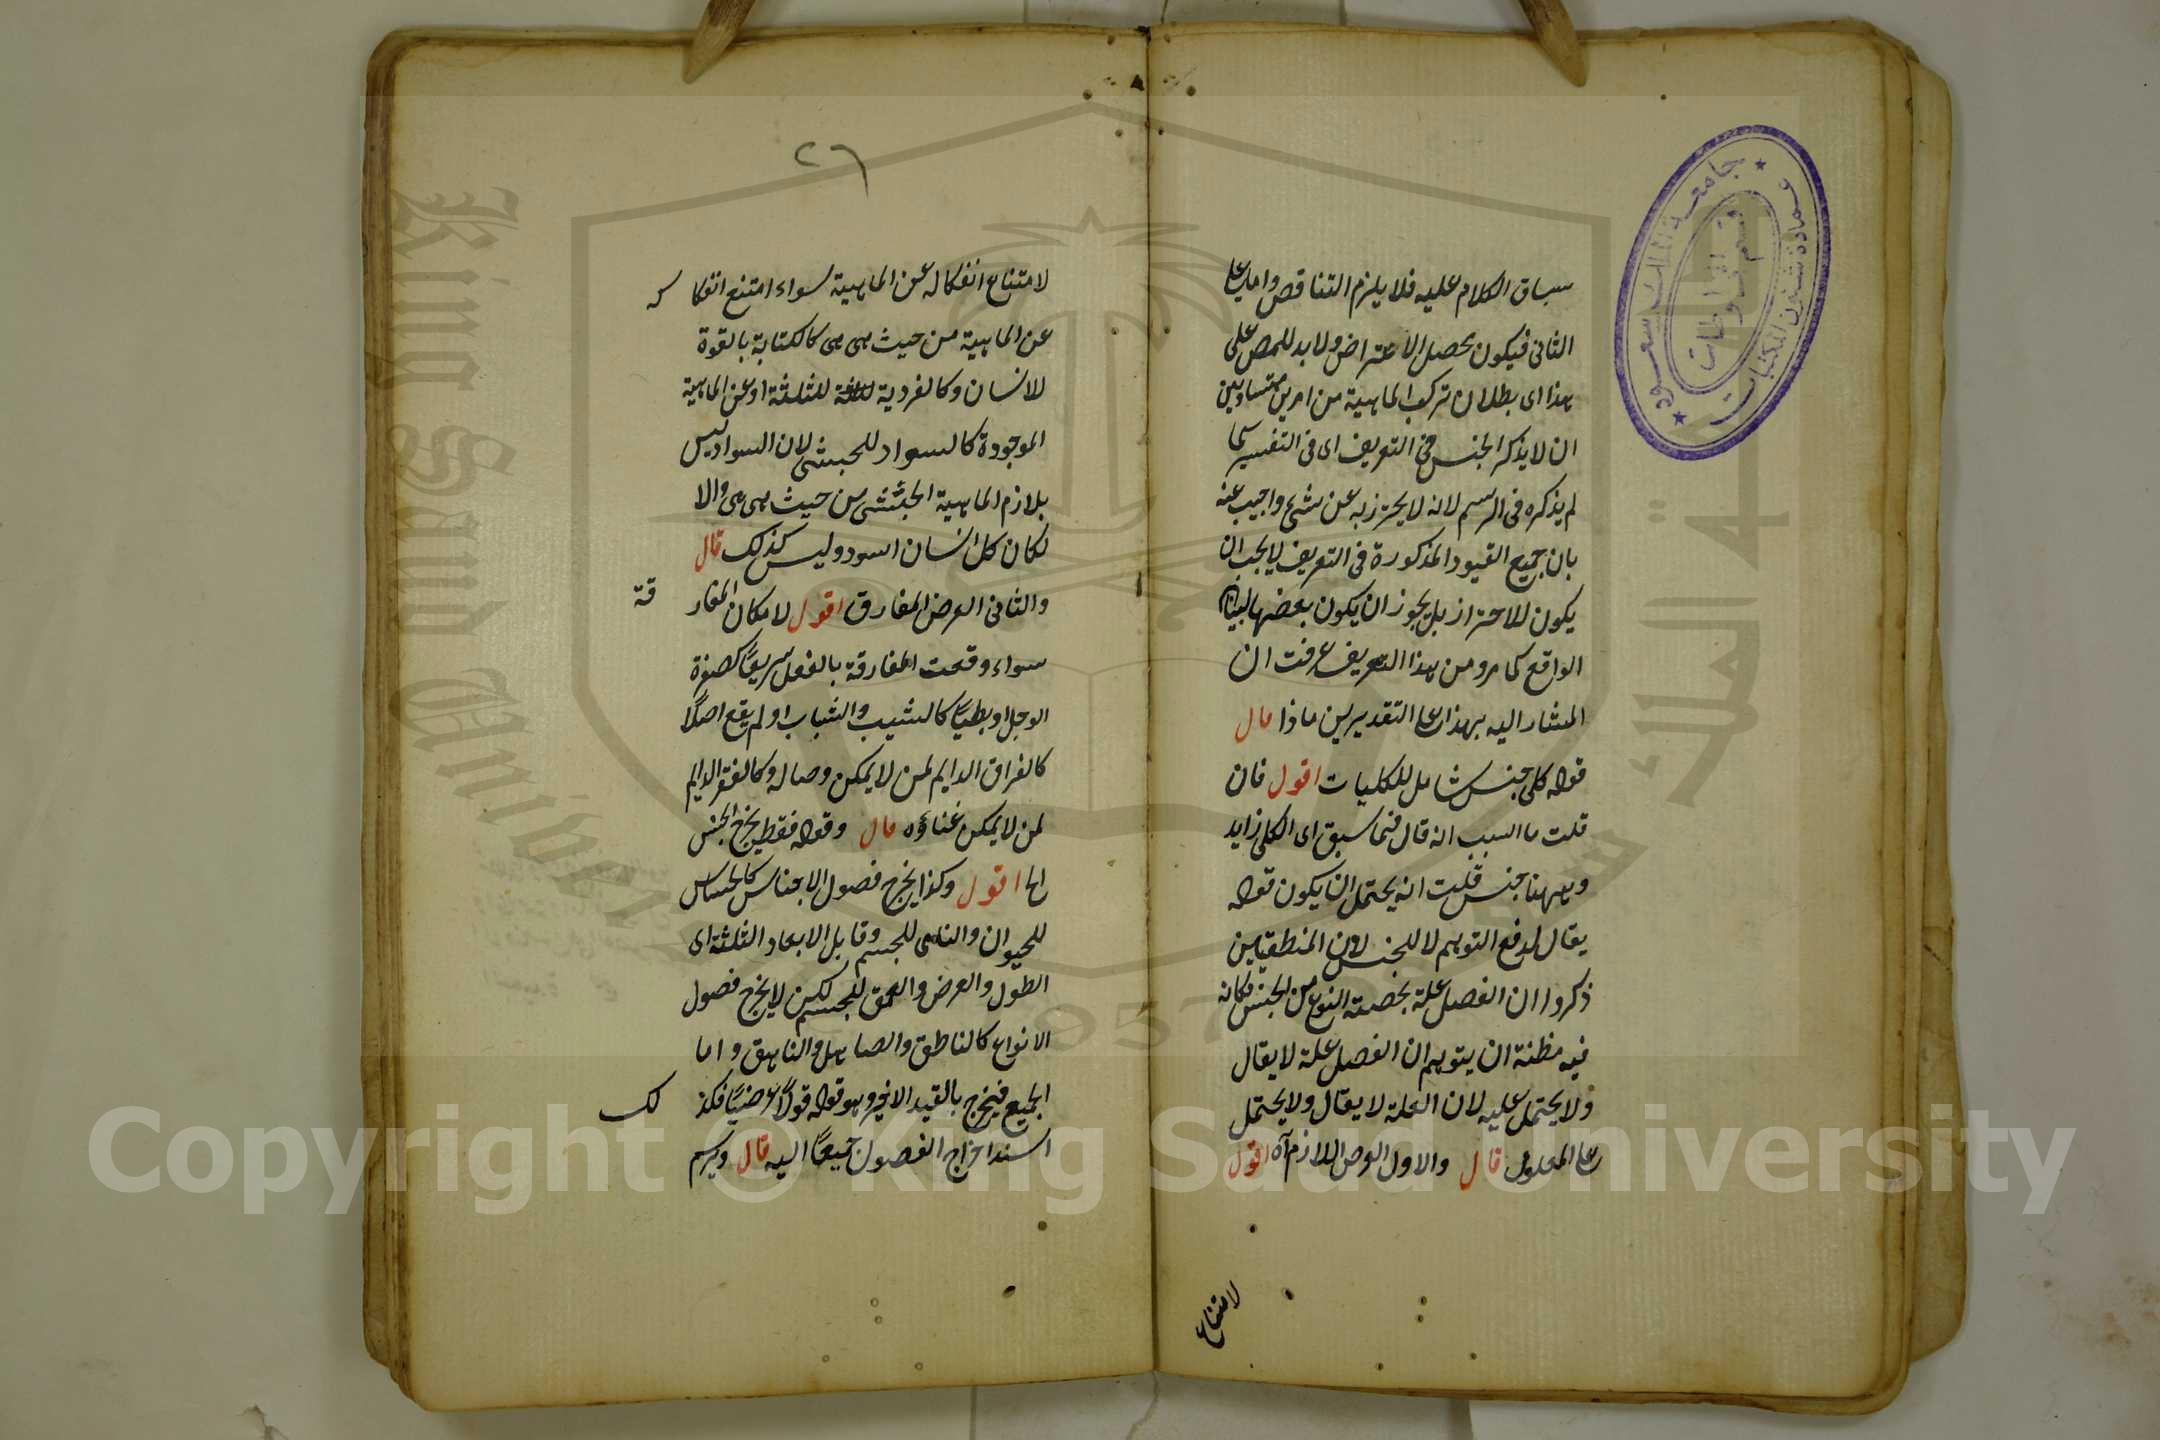 سياق الكلام عليه فلا يلزم التناقض واما على
الثانى فيكون يحصل الاعتراض ولا بد للمص على
هذا اى بطلان تركب الماهية من امرين متساويين
ان لا يذكر الجنس فى التعريف اى فى التفسير كما
لم يذكره فى الرسم لانه لا يحترز به عن شئ واجيب عنه
بان جميع القيود المذكورة فى التعريف لا يجب ان
يكون للاحتراز بل يجوز ان يكون بعضها لبيان
الواقع كما مر ومن هذا التعريف عرفت ان
المشار اليه بهذا على التقديرين ماذا قال
قوله كلى جنس شامل للكليات اقول فان
قلت ما السبب انه قال فيما سبق اى الكلى زايد
وههنا جنس قلت انه يحتمل ان يكون قوله
يقال لدفع التوهم لا للجنس لان المنطقيين
ذكروا ان الفصل علة بخصة النوع من الجنس فكانه
فيه مظنة ان يتوهم ان الفصل علة لا يقال
ولا يحتمل عليه لان العلة لا يقال ولا يحتمل
على المعلول قال والاول العرض اللازم آه اقول
لامتناع
٢٦
لامتناع انفكاله عن الماهية سواء امتنع انفكا كه
عن الماهية من حيث هى هى كالكتابة بالقوة
للانسان وكالفردية للثلثة او عن الماهية
الموجودة كالسواد للحبشى لان السواد ليس
بلازم الماهية الحبشى من حيث هى هى والا
لكان كل انسان اسود وليس كذلك قال
والثانى العرض المفارق اقول لامكان المفار قة
سواء وقعت المفارقة بالفعل سريعًا كصفرة
الوجل او بطيئًا كالشيب والشباب او لم يقع اصلًا
كالفراق الدايم لمن لا يمكن وصاله وكالفقر الدايم
لمن لا يمكن غناؤه قال وقوله فقط يخرج الجنس
الخ اقول وكذا يخرج فصول الاجناس كالحساس
للحيوان والنامى للجسم وقابل الابعاد الثلثة اى
الطول والعرض والعمق للجسم لكن لا يخرج فصول
الانواع كالناطق والصاهل والناهق واما
الجميع فيخرج بالقيد الاخير وهو قوله قولًا عرضيًا فكذ لك
اسند اخراج الفصول جميعًا اليه قال ويرسم
جامعة الملك سعود
عمادة شئون المكتبات
قسم المخطوطات
Copyright © King Saud University
King Saud University
1957